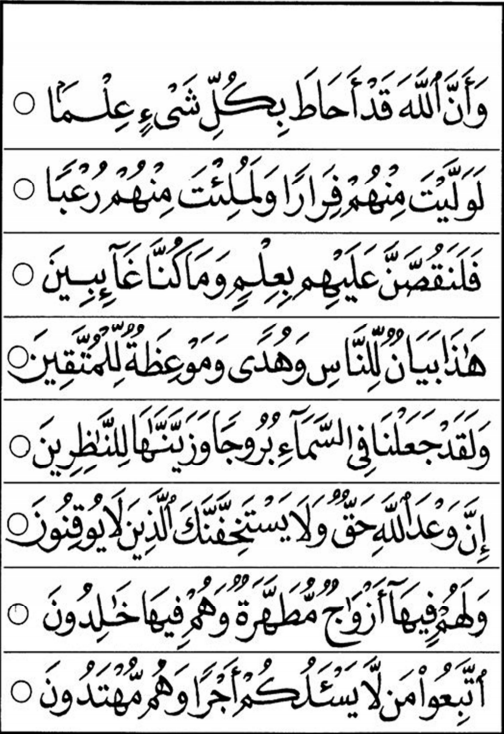 وَأَنَّ ٱللَّهَ قَدْ أَحَاطَ بِكُلِّ شَىْءٍ عِلْمًۢا
لَوَلَّيْتَ مِنْهُمْ فِرَارًا وَلَمُلِئْتَ مِنْهُمْ رُعْبًا
فَلَنَقُصَّنَّ عَلَيْهِم بِعِلْمٍ وَمَا كُنَّا غَآئِبِينَ
هَٰذَا بَيَانٌ لِّلنَّاسِ وَهُدًى وَمَوْعِظَةٌ لِّلْمُتَّقِينَ
وَلَقَدْ جَعَلْنَا فِى ٱلسَّمَآءِ بُرُوجًا وَزَيَّنَّٰهَا لِلنَّٰظِرِينَ
إِنَّ وَعْدَ ٱللَّهِ حَقٌّ وَلَا يَسْتَخِفَّنَّكَ ٱلَّذِينَ لَا يُوقِنُونَ
وَلَهُمْ فِيهَآ أَزْوَٰجٌ مُّطَهَّرَةٌ وَهُمْ فِيهَا خَٰلِدُونَ
ٱتَّبِعُوا۟ مَن لَّا يَسْـَٔلُكُمْ أَجْرًا وَهُم مُّهْتَدُونَ